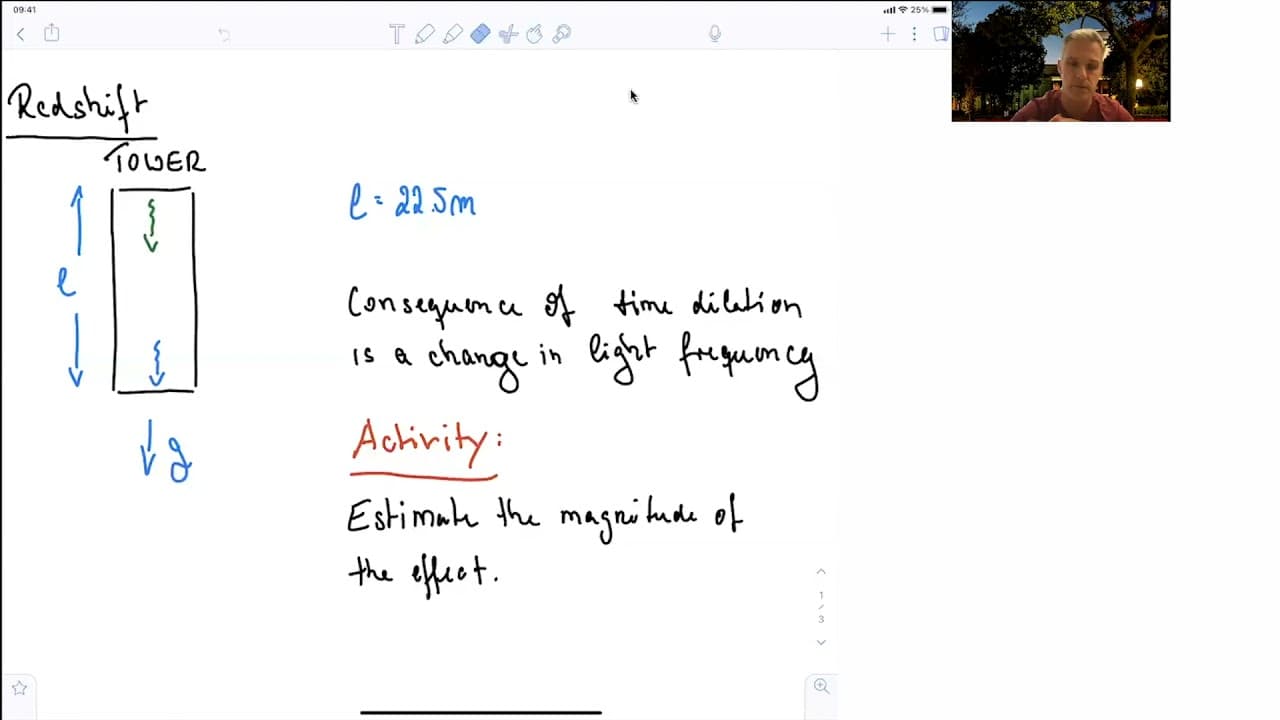 09:41
25%
Redshift
TOWER
l = 22.5m
l
Consequence of time dilation
is a change in light frequency
g
Activity:
Estimate the magnitude of
the effect.
1
/
3